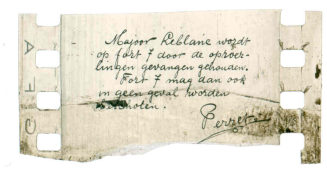 Majoor Leblanc wordt
op fort 7 door de oproer-
lingen gevangen gehouden.
Fort 7 mag dan ook
in geen geval worden
beschoten.